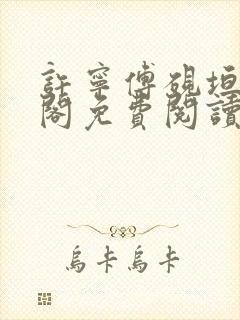 許寧傅硯垣
閣免費閱讀
烏卡烏卡